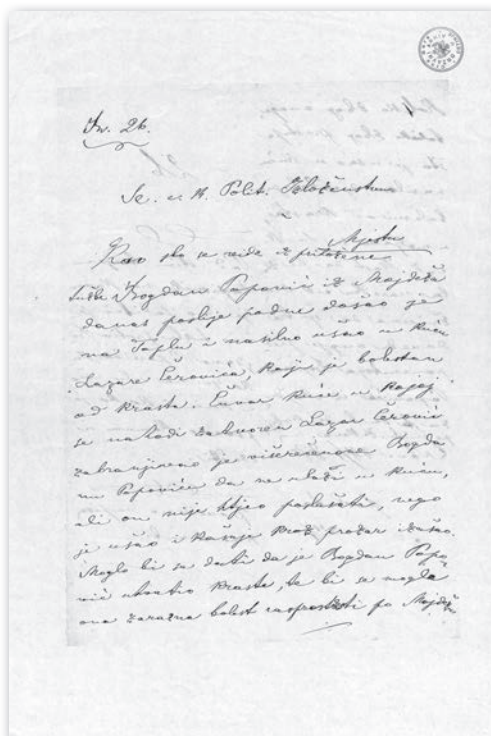 Br. 26.
C. i K. Polit. Izloženstvu
Mjestu
Kao što se vidi iz priložene
tužbe Bogdan Popović iz Mojdeža
danas poslije podne došao je
na Toplu i nasilno ušao u kuću
Lazara Čerovića, koji je bolestan
od krasta. Čuvar kuće u kojoj
se nahodi zatvoren Lazar Čerović
zabranjivao je višerečenome Bogda
nu Popoviću da ne ulazi u kuću,
ali on nije htjeo poslušati, nego
je ušao i kasnije kroz prozor izašao.
Moglo bi se dati da je Bogdan Popo
vić uhvatio kraste, te bi se mogla
ona zarazna bolest rasprostrti po Mojdežu